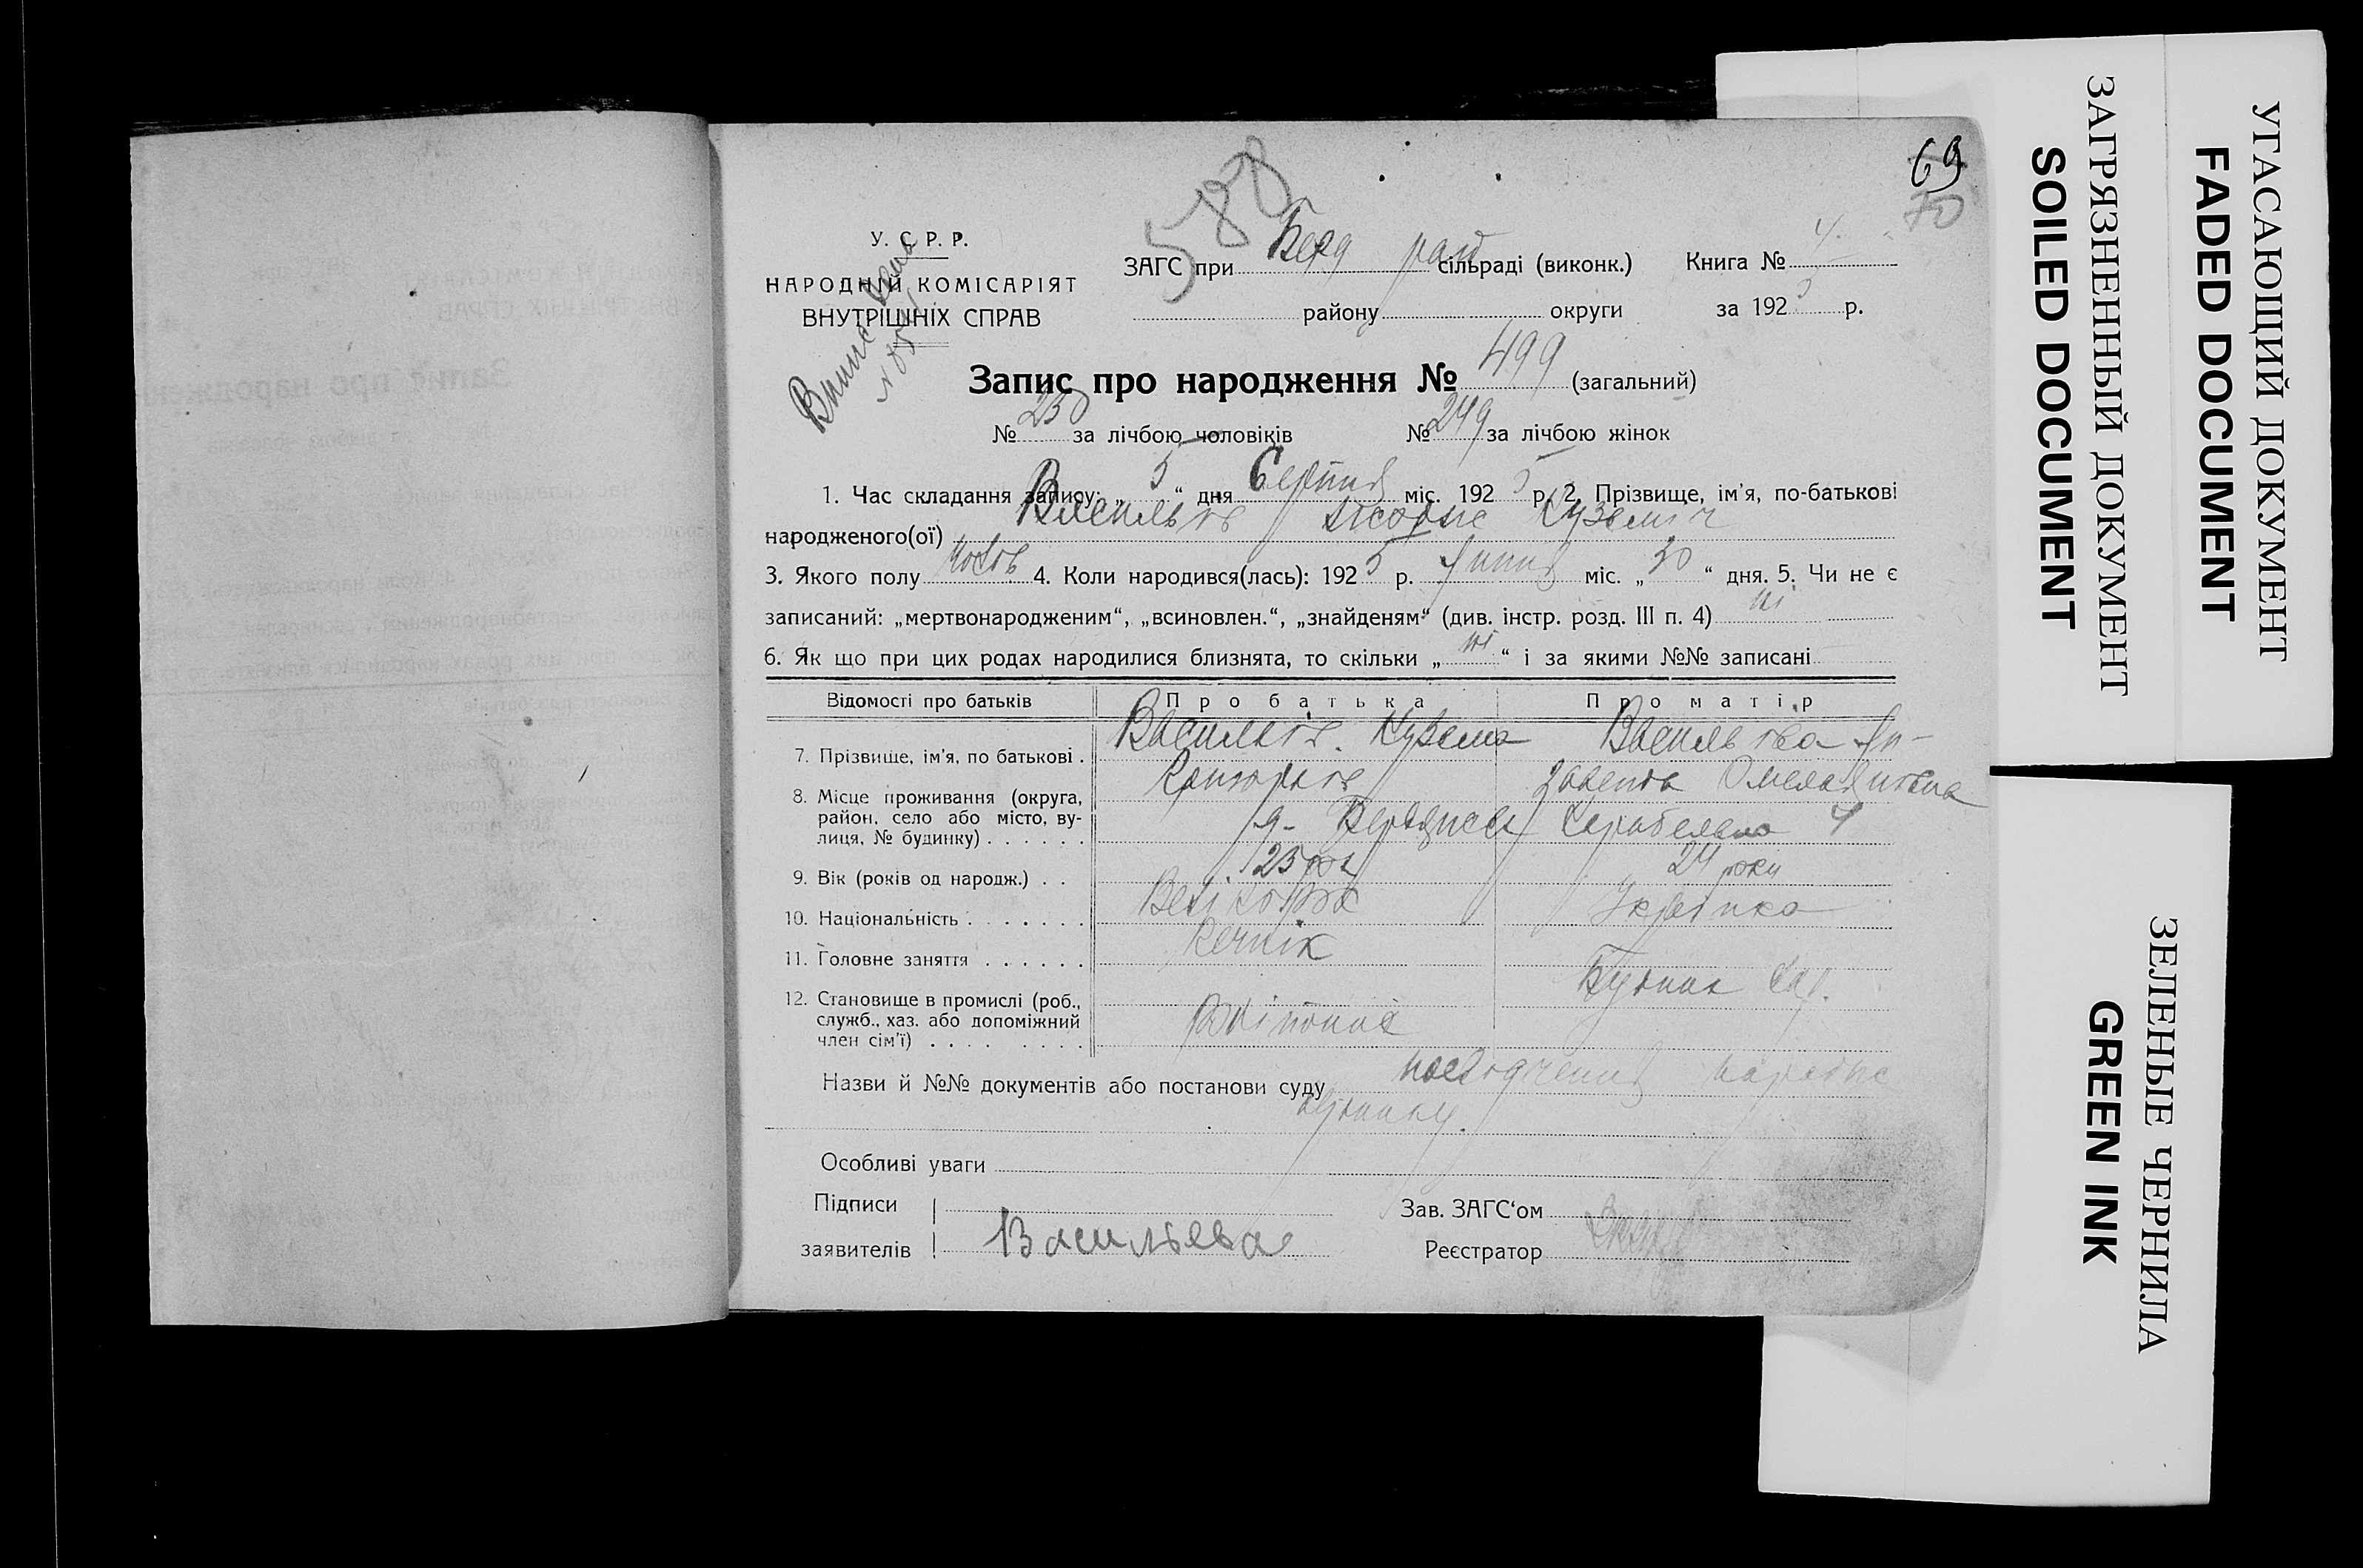 69
70
588
У. С. Р. Р.
НАРОДНІЙ КОМІСАРІЯТ
ВНУТРІШНІХ СПРАВ
ЗАГС при Берд рай сільраді (виконк.)
Книга № 4
району округи
за 1925 р.
Запис про народження № 499 (загальний)
№ 250 за лічбою чоловіків № 249 за лічбою жінок
1. Час складання запису: „ 5 “ дня Серпня міс. 1925 р. 2. Прізвище, ім’я, по-батькові
народженого(ої) Васильєв
3. Якого полу 4. Коли народився(лась): 1925 р. Липня міс. „ 30 “ дня. 5. Чи не є
записаний: „мертвонародженим“, „всиновлен.“, „знайденям“ (див. інстр. розд. III п. 4) ні
6. Як що при цих родах народилися близнята, то скільки „ ні “ і за якими №№ записані
Відомості про батьків
Про батька
Про матір
7. Прізвище, ім’я, по батькові .
Васильєв Кузьма
Васильєва Ли-
8. Місце проживання (округа,
район, село або місто, ву-
лиця, № будинку) . . . . . .
завета Омелянівна
Бердянськ
4
9. Вік (років од народж.) . .
25 рок
24 роки
10. Національність . . . . . . .
Українка
11. Головне заняття . . . . . .
12. Становище в промислі (роб.,
служб., хаз. або допоміжний
член сім’ї) . . . . . . . .
Назви й №№ документів або постанови суду посвідчення
будинку.
Особливі уваги
Підписи
заявителів
Васильева
Зав. ЗАГС‘ом
Реєстратор
ЗАГРЯЗНЕННЫЙ ДОКУМЕНТ
SOILED DOCUMENT
УГАСАЮЩИЙ ДОКУМЕНТ
FADED DOCUMENT
ЗЕЛЕНЫЕ ЧЕРНИЛА
GREEN INK